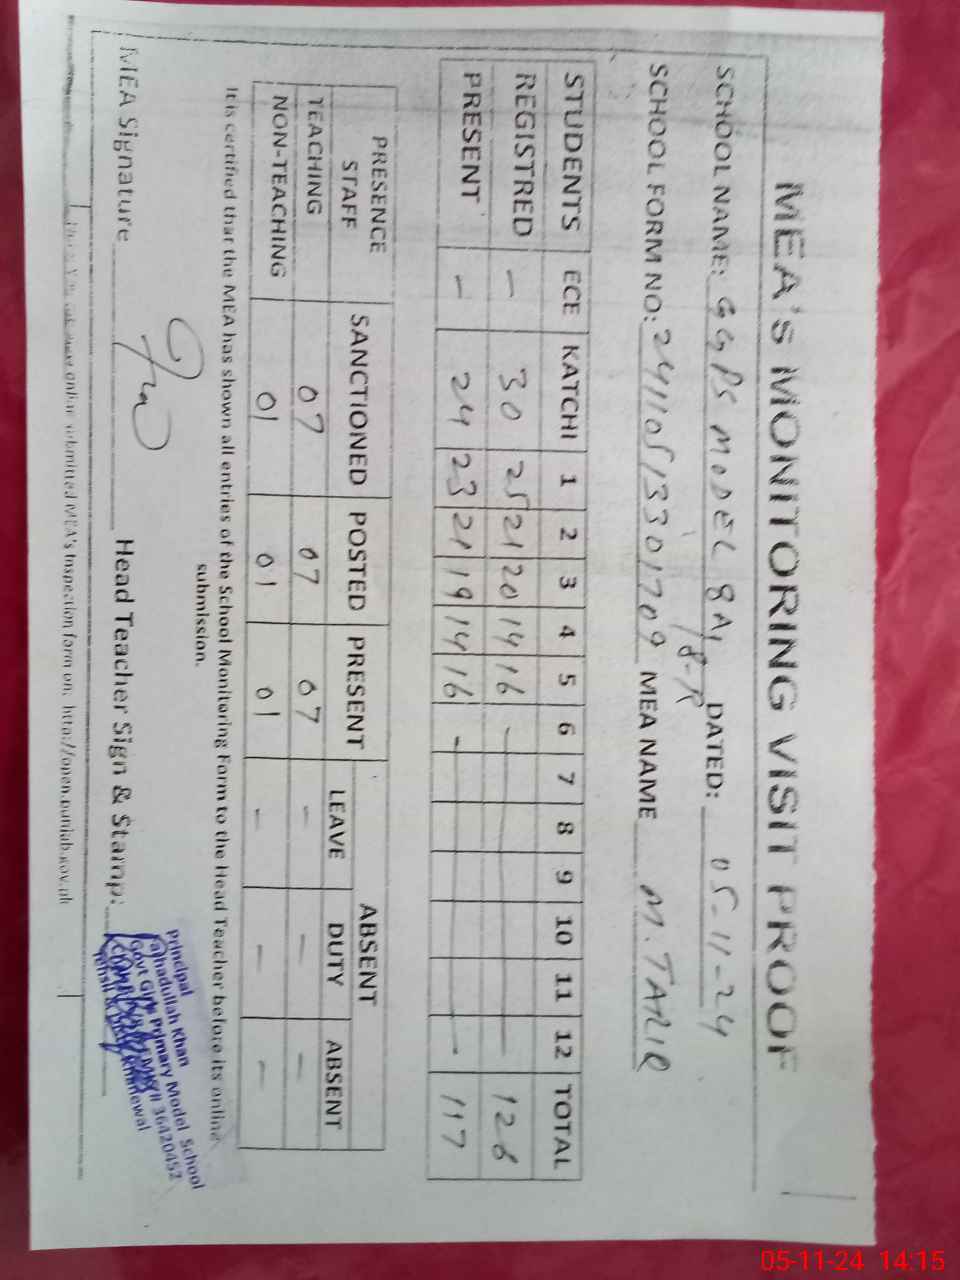 MEA'S MONITORING VISIT PROOF
SCHOOL NAME: GGPS MODEL 8A/ DATED: 05-11-24
/8-R
SCHOOL FORM NO: 24110513301709 MEA NAME M.TARIQ
STUDENTS ECE KATCHI 1 2 3 4 5 6 7 8 9 10 11 12 TOTAL
REGISTRED - 30 25 21 20 14 16 - - 126
PRESENT - 24 23 21 19 14 16 - - 117
PRESENCE STAFF SANCTIONED POSTED PRESENT ABSENT
LEAVE DUTY ABSENT
TEACHING 07 07 07 - - -
NON-TEACHING 01 01 01 - - -
It is certified that the MEA has shown all entries of the School Monitoring Form to the Head Teacher before its online
submission.
MEA Signature Head Teacher Sign & Stamp:
Principal
Khan
Govt Girls Primary Model School
36420452
Tehsil Khanewal
online submitted MEA's Inspection form on: http://open.punjab.gov.pk
05-11-24 14:15